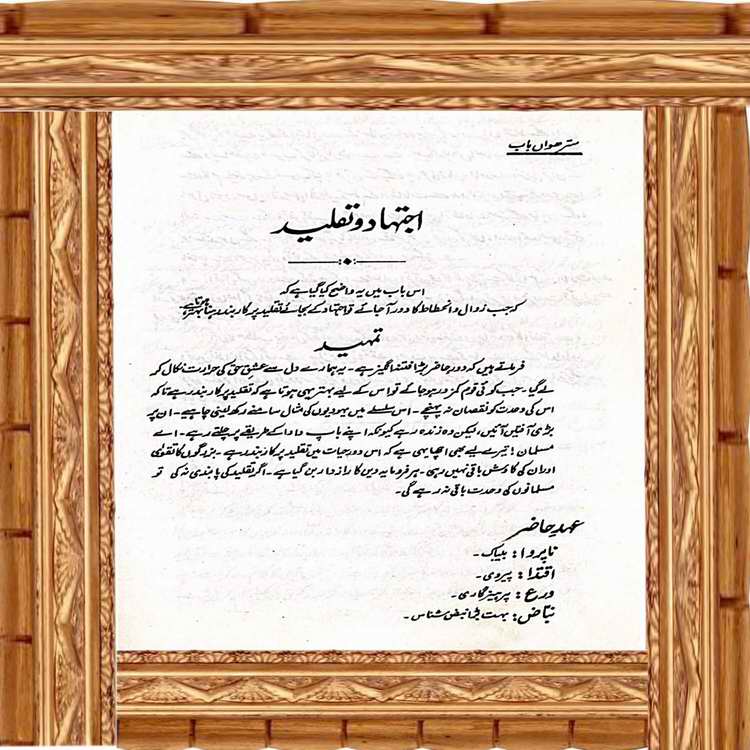 سترھواں باب
اجتہاد و تقلید
اس باب میں یہ واضح کیا گیا ہے کہ
کہ جب زوال و انحطاط کا دور آجائے تو اجتہاد کے بجائے تقلید پر کاربند رہنا بہتر ہوتا ہے
تمہید
فرماتے ہیں کہ دورِ حاضر بڑا فتنہ انگیز ہے۔ یہ ہمارے دل سے عشقِ حق کی حرارت نکال کر
لے گیا۔ جب کوئی قوم کمزور ہو جائے تو اس کے لیے بہتر یہی ہوتا ہے کہ تقلید پر کاربند رہے تاکہ
اس کی وحدت کو نقصان نہ پہنچے۔ اس سلسلے میں یہودیوں کی مثال سامنے رکھ لینی چاہیے۔ ان پر
بڑی آفتیں آئیں، لیکن وہ زندہ رہے کیونکہ اپنے باپ دادا کے طریقے پر چلتے رہے۔ اے
مسلمان! تیرے لیے بھی اچھا یہی ہے کہ اس دورِ حیات میں تقلید پر کاربند رہے۔ بزرگوں کا تقویٰ
اور ان کی کاوش باقی نہیں رہی۔ ہر فرومایہ دین کا راز دار بن گیا ہے۔ اگر تقلید کی پابندی نہ کی تو
مسلمانوں کی وحدت باقی نہ رہے گی۔
عہدِ حاضر
ناپروا: بیباک۔
اقتدا: پیروی۔
ورع: پرہیزگاری۔
نباض: بہت بڑا نبض شناس۔